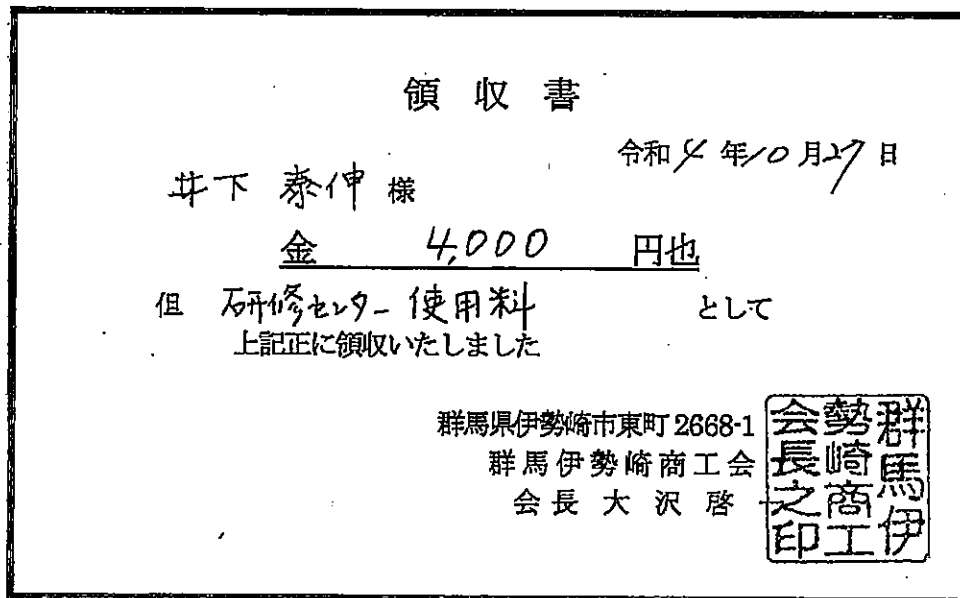 領収書
令和4年10月27日
井下 泰伸 様
金 4,000 円也
但 研修センター使用料 として
上記正に領収いたしました
群馬県伊勢崎市東町2668-1
群馬伊勢崎商工会
会長 大沢啓
群馬伊勢崎商工会長之印